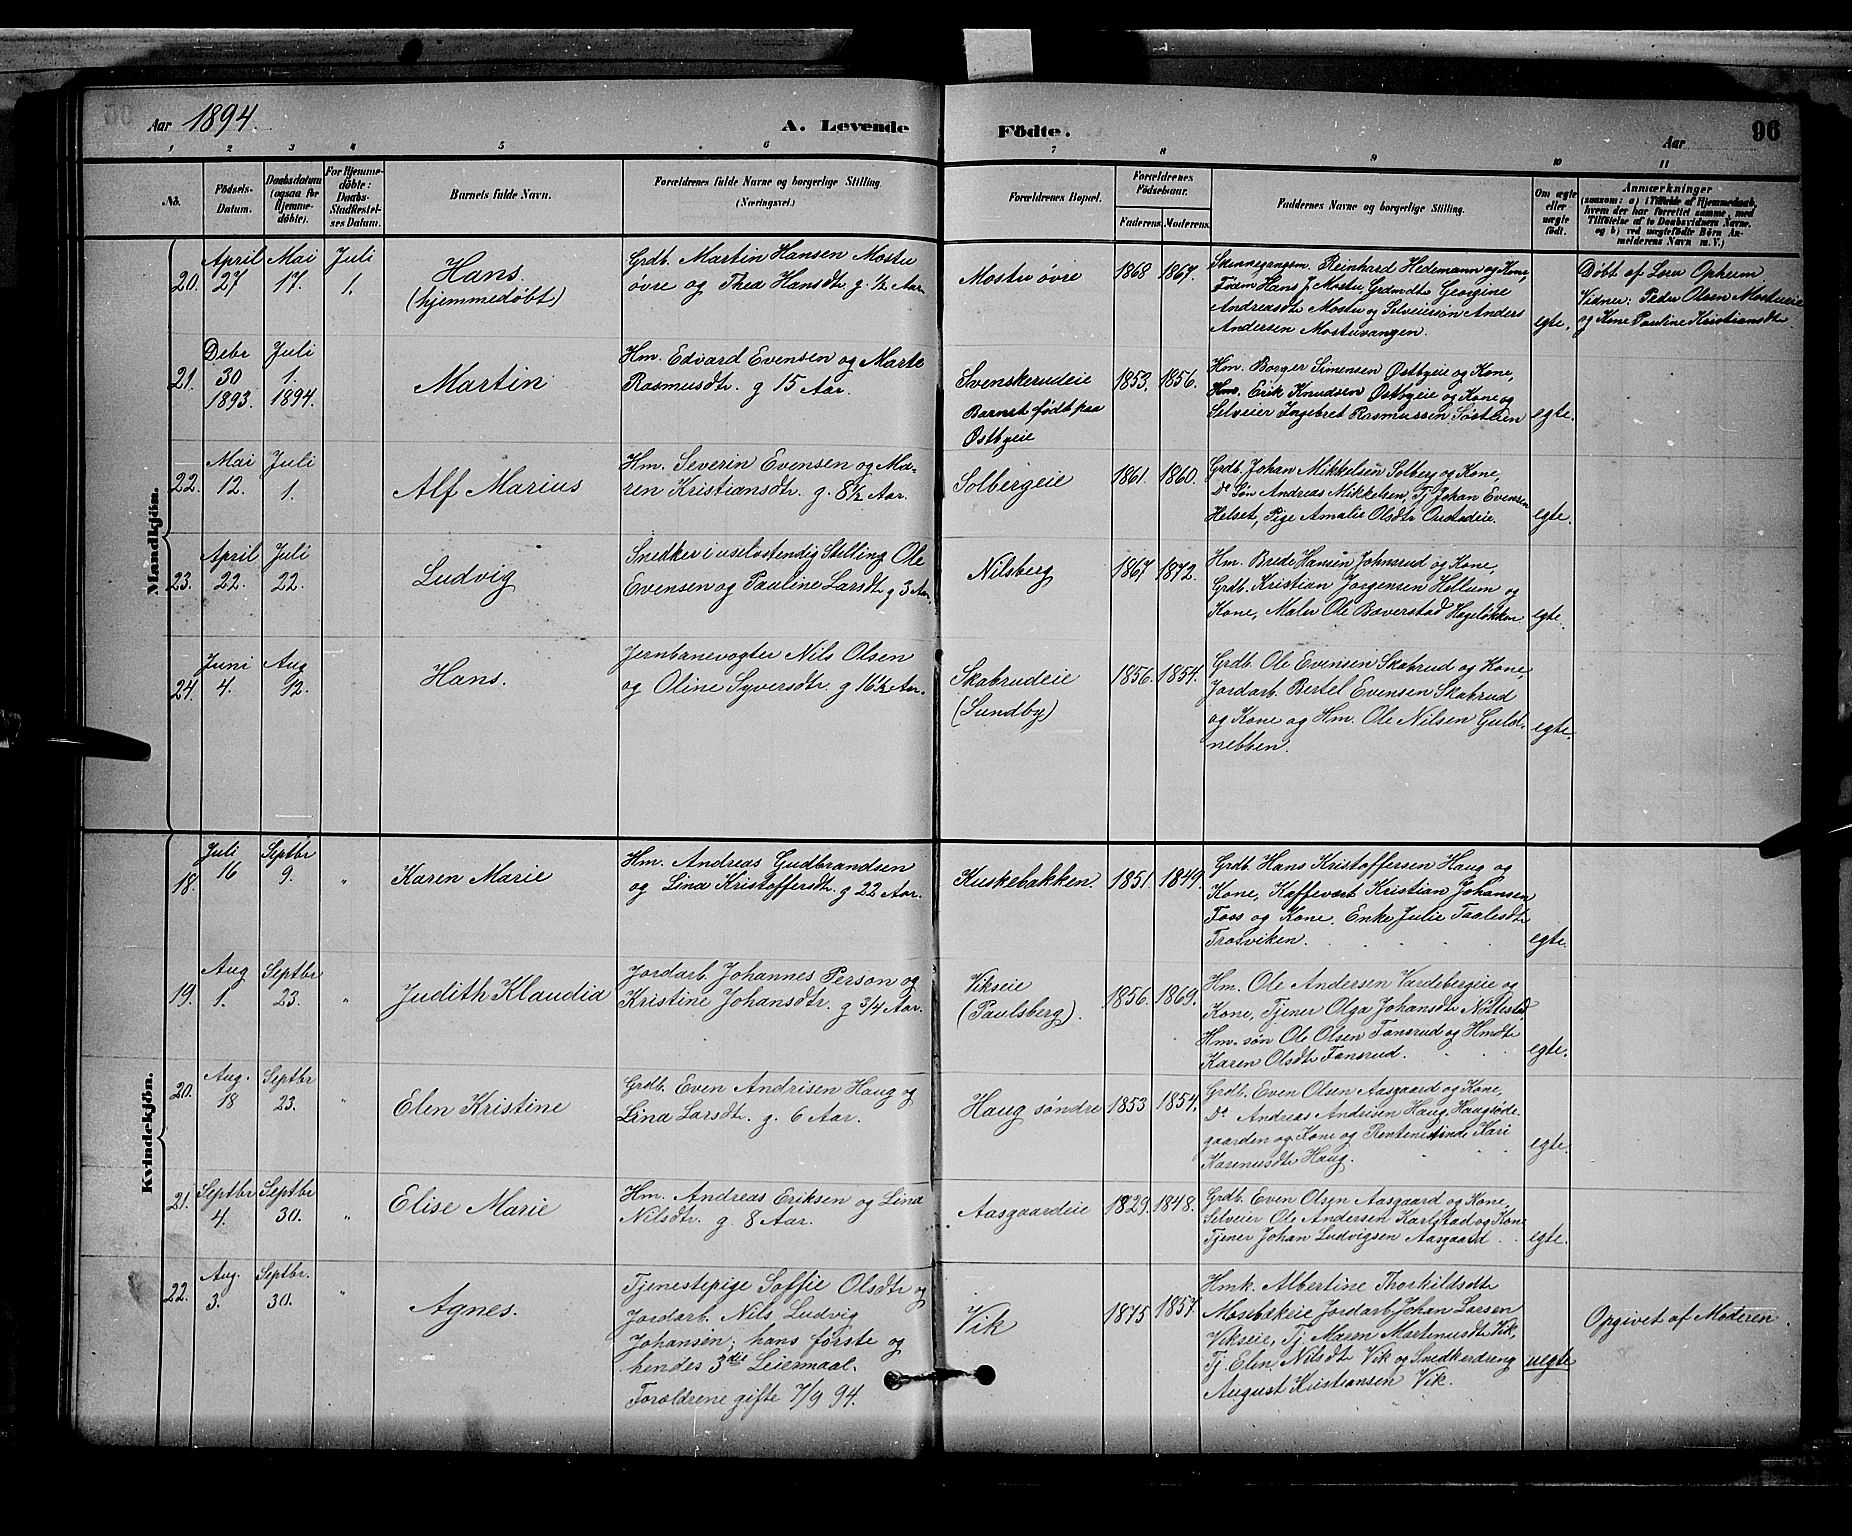 Aar 1894.
A. Levende Födte.
Aar
96
1 2 3 4 5 6 7 8 9 10 11
No.
Födsels-Datum.
Daabsdatum (ogsaa for Hjemmedöbte).
For Hjemmedöbte: Daabs-Stadfestelses Datum.
Barnets fulde Navn.
Forældrenes fulde Navne og borgerlige Stilling. (Næringsvei.)
Forældrenes Bopæl.
Forældrenes Födselsaar.
Faderens. Moderens.
Faddernes Navne og borgerlige Stilling.
Om ægte eller uægte födt.
Anmærkninger
(saasom: a) i Tilfælde af Hjemmedaab, hvem der har forrettet samme, med Tilföielse af to Daabsvidners Navne, og b) ved uægtefödte Börn Anmelderens Navn m. V.)
Mandkjön.
20.
April 27
Mai 17.
Juli 1.
Hans.
(hjemmedøbt)
Grdb. Martin Hansen Mostu
øvre og Thea Hansdtr. g. 1/2 Aar.
Mostu øvre
1868 1867.
Skinnegangsm. Reinhard Hedemann og Kone,
Hans J. Mostu, Grdmdtr Georgine
Andreasdtr Mostu og Selveiersøn Anders
Andersen Mostuvangen.
egte.
Døbt af Opheim
Vidner: Peder Olsen Mostueie
og Kone Pauline Kristiansdtr
21.
Debr 30 1893.
Juli 1. 1894.
Martin
Hm. Edvard Evensen og Marte
Rasmusdtr. g 15 Aar.
Svenskerudeie
Barnet født paa
Østbyeie
1853. 1856.
Hm. Borger Simensen Østbyeie og Kone,
Hm. Erik Knudsen Østbyeie og Kone og
Selveier Ingebret Rasmussen Søstlien
egte.
22.
Mai 12.
Juli 1.
Alf Marius
Hm. Severin Evensen og Ma-
ren Kristiansdtr. g. 8 1/2 Aar.
Solbergeie
1861. 1860.
Grdb. Johan Mikkelsen Solberg og Kone,
Do Søn Andreas Mikkelsen, Tj Johan Evensen
Helset, Pige Amalie Olsdtr Oustadeie.
egte.
23.
April 22.
Juli 22.
Ludvig
Snedker i uselvstendig Stilling Ole
Evensen og Pauline Larsdtr g 3 Aar.
Nilsberg
1867 1872.
Hm. Brede Hansen Johnsrud og Kone,
Grdb. Kristian Jørgensen Hellum og
Kone, Maler Ole Bæverstad Hageløkken
egte.
24.
Juni 4.
Aug 12.
Hans.
Jernbanevogter Nils Olsen
og Oline Syversdtr g 16 1/2 Aar.
Skabrudeie
(Sundby)
1856. 1854.
Grdb. Ole Evensen Skabrud og Kone,
Jordarb. Bertel Evensen Skabrud
og Kone og Hm. Ole Nilsen Guld-
nebben.
egte.
Kvindekjön.
18.
Juli 16
Septbr 9.
"
Karen Marie
Hm. Andreas Gudbrandsen
og Lina Kristoffersdtr. g 22 Aar.
Kuskebakken.
1851. 1849.
Grdb. Hans Kristoffersen Haug og
Kone, Kaffevert Kristian Johansen
Foss og Kone. Enke Julie Taalesdtr
Trosviken.
egte.
19.
Aug 1.
Septbr 23.
"
Judith Klaudia
Jordarb. Johannes Person og
Kristine Johansdtr. g 3/4 Aar.
Vikseie
(Paulsberg).
1856. 1869.
Hm. Ole Andersen Vardebergeie og
Kone, Tjener Olga Johansdtr Nøttestad
Hm. søn Ole Olsen Fansrud og Hmdtr
Karen Olsdtr Fansrud.
egte.
20.
Aug. 18
Septbr 23.
"
Elen Kristine
Grdb. Even Andrisen Haug og
Lina Larsdtr. g. 6 Aar.
Haug søndre
1853 1854.
Grdb. Even Olsen Aasgaard og Kone,
Do Andreas Andrisen Haug, Haugsøde-
gaarden og Kone og Kari
Karenusdtr Haug.
egte.
21.
Septbr 4.
Septbr 30.
"
Elise Marie
Hm. Andreas Eriksen og Lina
Nilsdtr. g. 8 Aar.
Aasgaardeie
1829. 1848.
Grdb. Even Olsen Aasgaard og Kone,
Selveier Ole Andersen Karlstad og Kone
Tjener Johan Ludvigsen Aasgaard
egte.
22.
Aug. 3.
Septbr. 30.
"
Agnes.
Tjenestepige Soffie Olsdtr og
Jordarb. Nils Ludvig
Johansen; hans første og
hendes 3die Leiermaal.
Forældrene gifte 7/9 94.
Vik
1875 1857.
Hmk. Albertine Thorkildsdtr
Mosebækeie Jordarb. Johan Larsen
Vikseie, Tj. Maren Martinusdtr Vik,
Tj Elen Nilsdtr Vik og Snedkerdreng
August Kristiansen Vik.
uegte
Opgivet af Moderen.